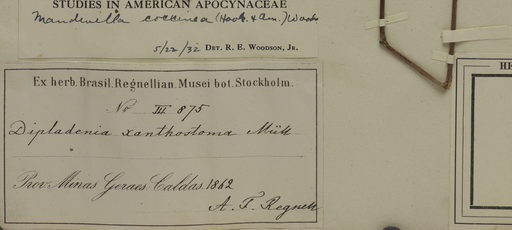 STUDIES IN AMERICAN APOCYNACEAE
Mandevilla coccinea (Hook. & Arn.) Woods
5/22/32 DET. R. E. WOODSON, JR.
Ex herb. Brasil. Regnellian. Musei bot. Stockholm.
No III 875
Dipladenia xanthostoma Müll
Prov. Minas Geraes, Caldas. 1862
A. F. Regnell
HE